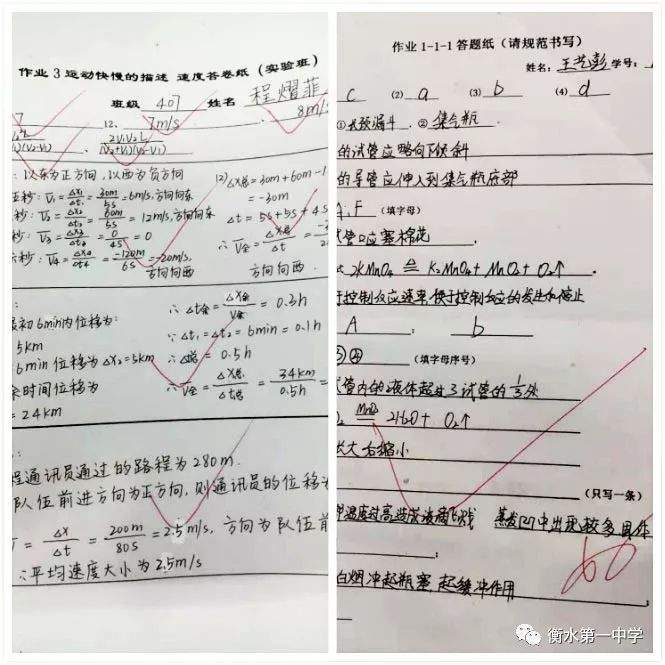 作业3 运动快慢的描述 速度答卷纸（实验班）
班级 407 姓名 程熠菲
12、 7m/s 8m/s
2V₁V₂L
(V₂+V₁)(V₂-V₁)
以东为正方向，以西为负方向
秒：V̄₁=Δx₁/Δt₁=30m/5s=6m/s，方向向东
秒：V̄₂=Δx₂/Δt₂=60m/5s=12m/s，方向向东
秒：V̄₃=Δx₃/Δt₃=0/4s=0
秒：V̄₄=Δx₄/Δt₄=-120m/6s=-20m/s，
方向向西
12) Δx总=30m+60m-1
=-30m
Δt=5s+5s+4s
∴V̄全=Δx总/Δt=-3
方向向西．
最初6min内位移为：
5km
6min位移为Δx₂=5km
余时间位移为
=24km
∴Δt余=Δx余/V余=0.3h
∵Δt₁=Δt₂=6min=0.1h
∴Δt总=0.5h
∴V̄全=Δx总/Δt总=34km/0.5h=
程通讯员通过的路程为280m．
队伍前进方向为正方向，则通讯员的位移为
=Δx/Δt=200m/80s=2.5m/s，方向为队伍前
∴平均速度大小为2.5m/s
作业1-1-1答题纸（请规范书写）
姓名：王艺彭 学号：
c (2) a (3) b (4) d
①长颈漏斗．②集气瓶．
的试管应略向下倾斜
的导管应伸入到集气瓶底部
F （填字母）
管口应塞棉花．
2KMnO₄ ≜ K₂MnO₄+MnO₂+O₂↑．
控制反应速率，便于控制反应的发生和停止
A ； b
③④ （填字母序号）
管内的液体超过了试管的1/3处
MnO₂ 2H₂O+O₂↑
大右缩小
（只写一条）
温度过高造成液滴飞溅 蒸发皿中出现较多固体
；
白烟 冲起瓶塞，起缓冲作用 ；
60
衡水第一中学